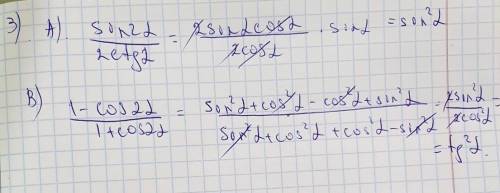 3). A). sin2α / 2ctgα = 2sinαcosα / 2cosα · sinα = sin²α
B) 1-cos2α / 1+cos2α = sin²α+cos²α-cos²α+sin²α / sin²α+cos²α+cos²α-sin²α = 2sin²α / 2cos²α =
= tg²α.